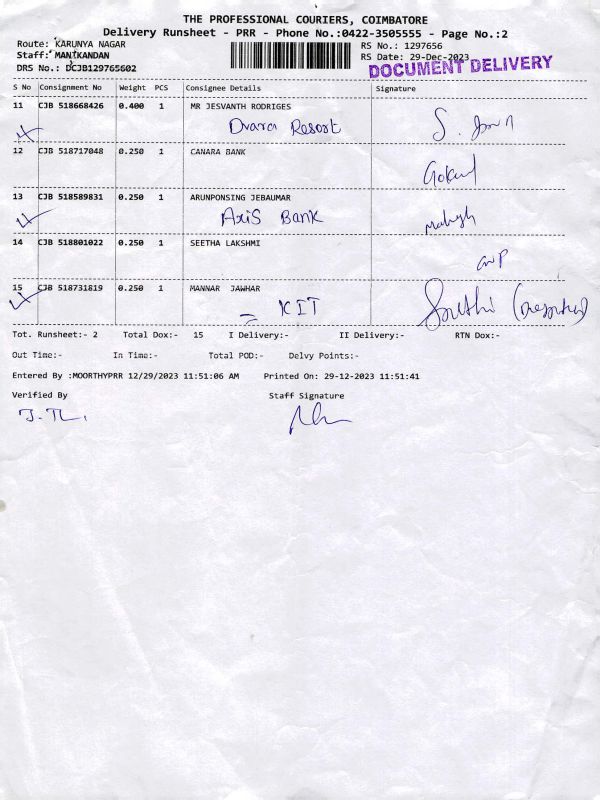 THE PROFESSIONAL COURIERS, COIMBATORE
Delivery Runsheet - PRR - Phone No.:0422-3505555 - Page No.:2
Route: KARUNYA NAGAR RS No.: 1297656
Staff: MANIKANDAN RS Date: 29-Dec-2023
DRS No.: DCJB129765602 DOCUMENT DELIVERY
S No Consignment No Weight PCS Consignee Details Signature
11 CJB 518668426 0.400 1 MR JESVANTH RODRIGES
Dvara Resort
12 CJB 518717048 0.250 1 CANARA BANK
Gokul
13 CJB 518589831 0.250 1 ARUNPONSING JEBAUMAR
Axis Bank
14 CJB 518801022 0.250 1 SEETHA LAKSHMI
15 CJB 518731819 0.250 1 MANNAR JAWHAR
= KIT
Tot. Runsheet:- 2 Total Dox:- 15 I Delivery:- II Delivery:- RTN Dox:-
Out Time:- In Time:- Total POD:- Delvy Points:-
Entered By :MOORTHYPRR 12/29/2023 11:51:06 AM Printed On: 29-12-2023 11:51:41
Verified By Staff Signature